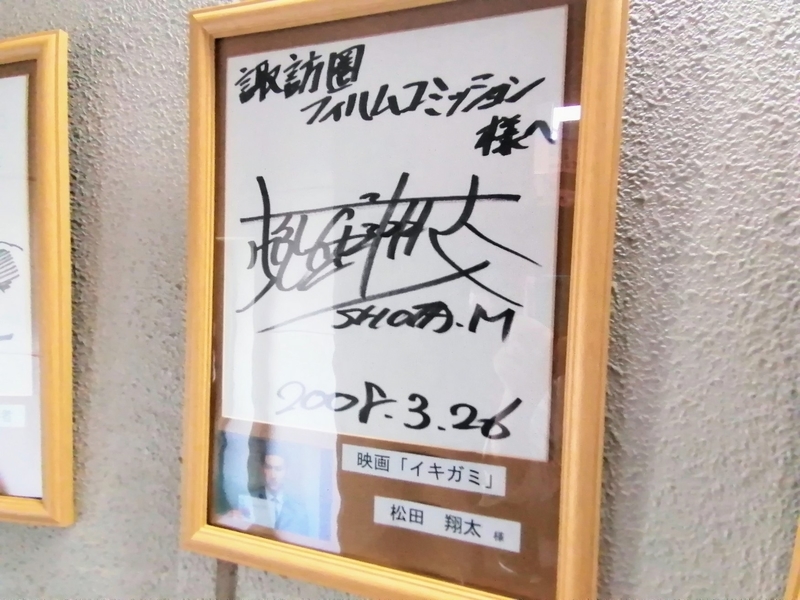 諏訪圏
フィルムコミッション
様へ
松田翔太
SHOTA.M
2008.3.26
映画「イキガミ」
松田 翔太 様